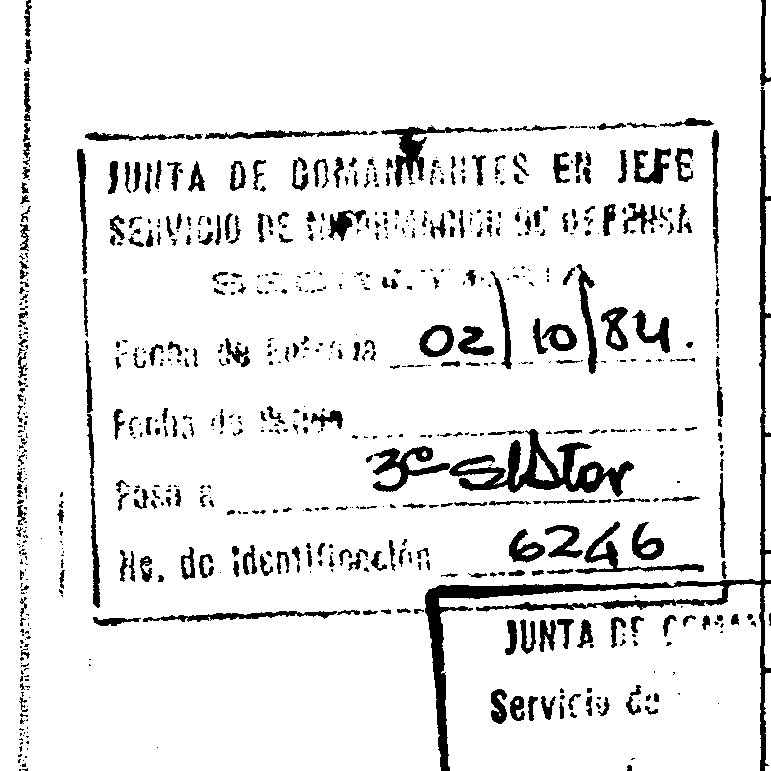 JUNTA DE COMANDANTES EN JEFE
SERVICIO DE INFORMACION DE DEFENSA
SECRETARIA
Fecha de Entrada 02/10/84.
Fecha de Salida
Pasa a 3º
No. de Identificación 6246
JUNTA DE COMAN
Servicio de